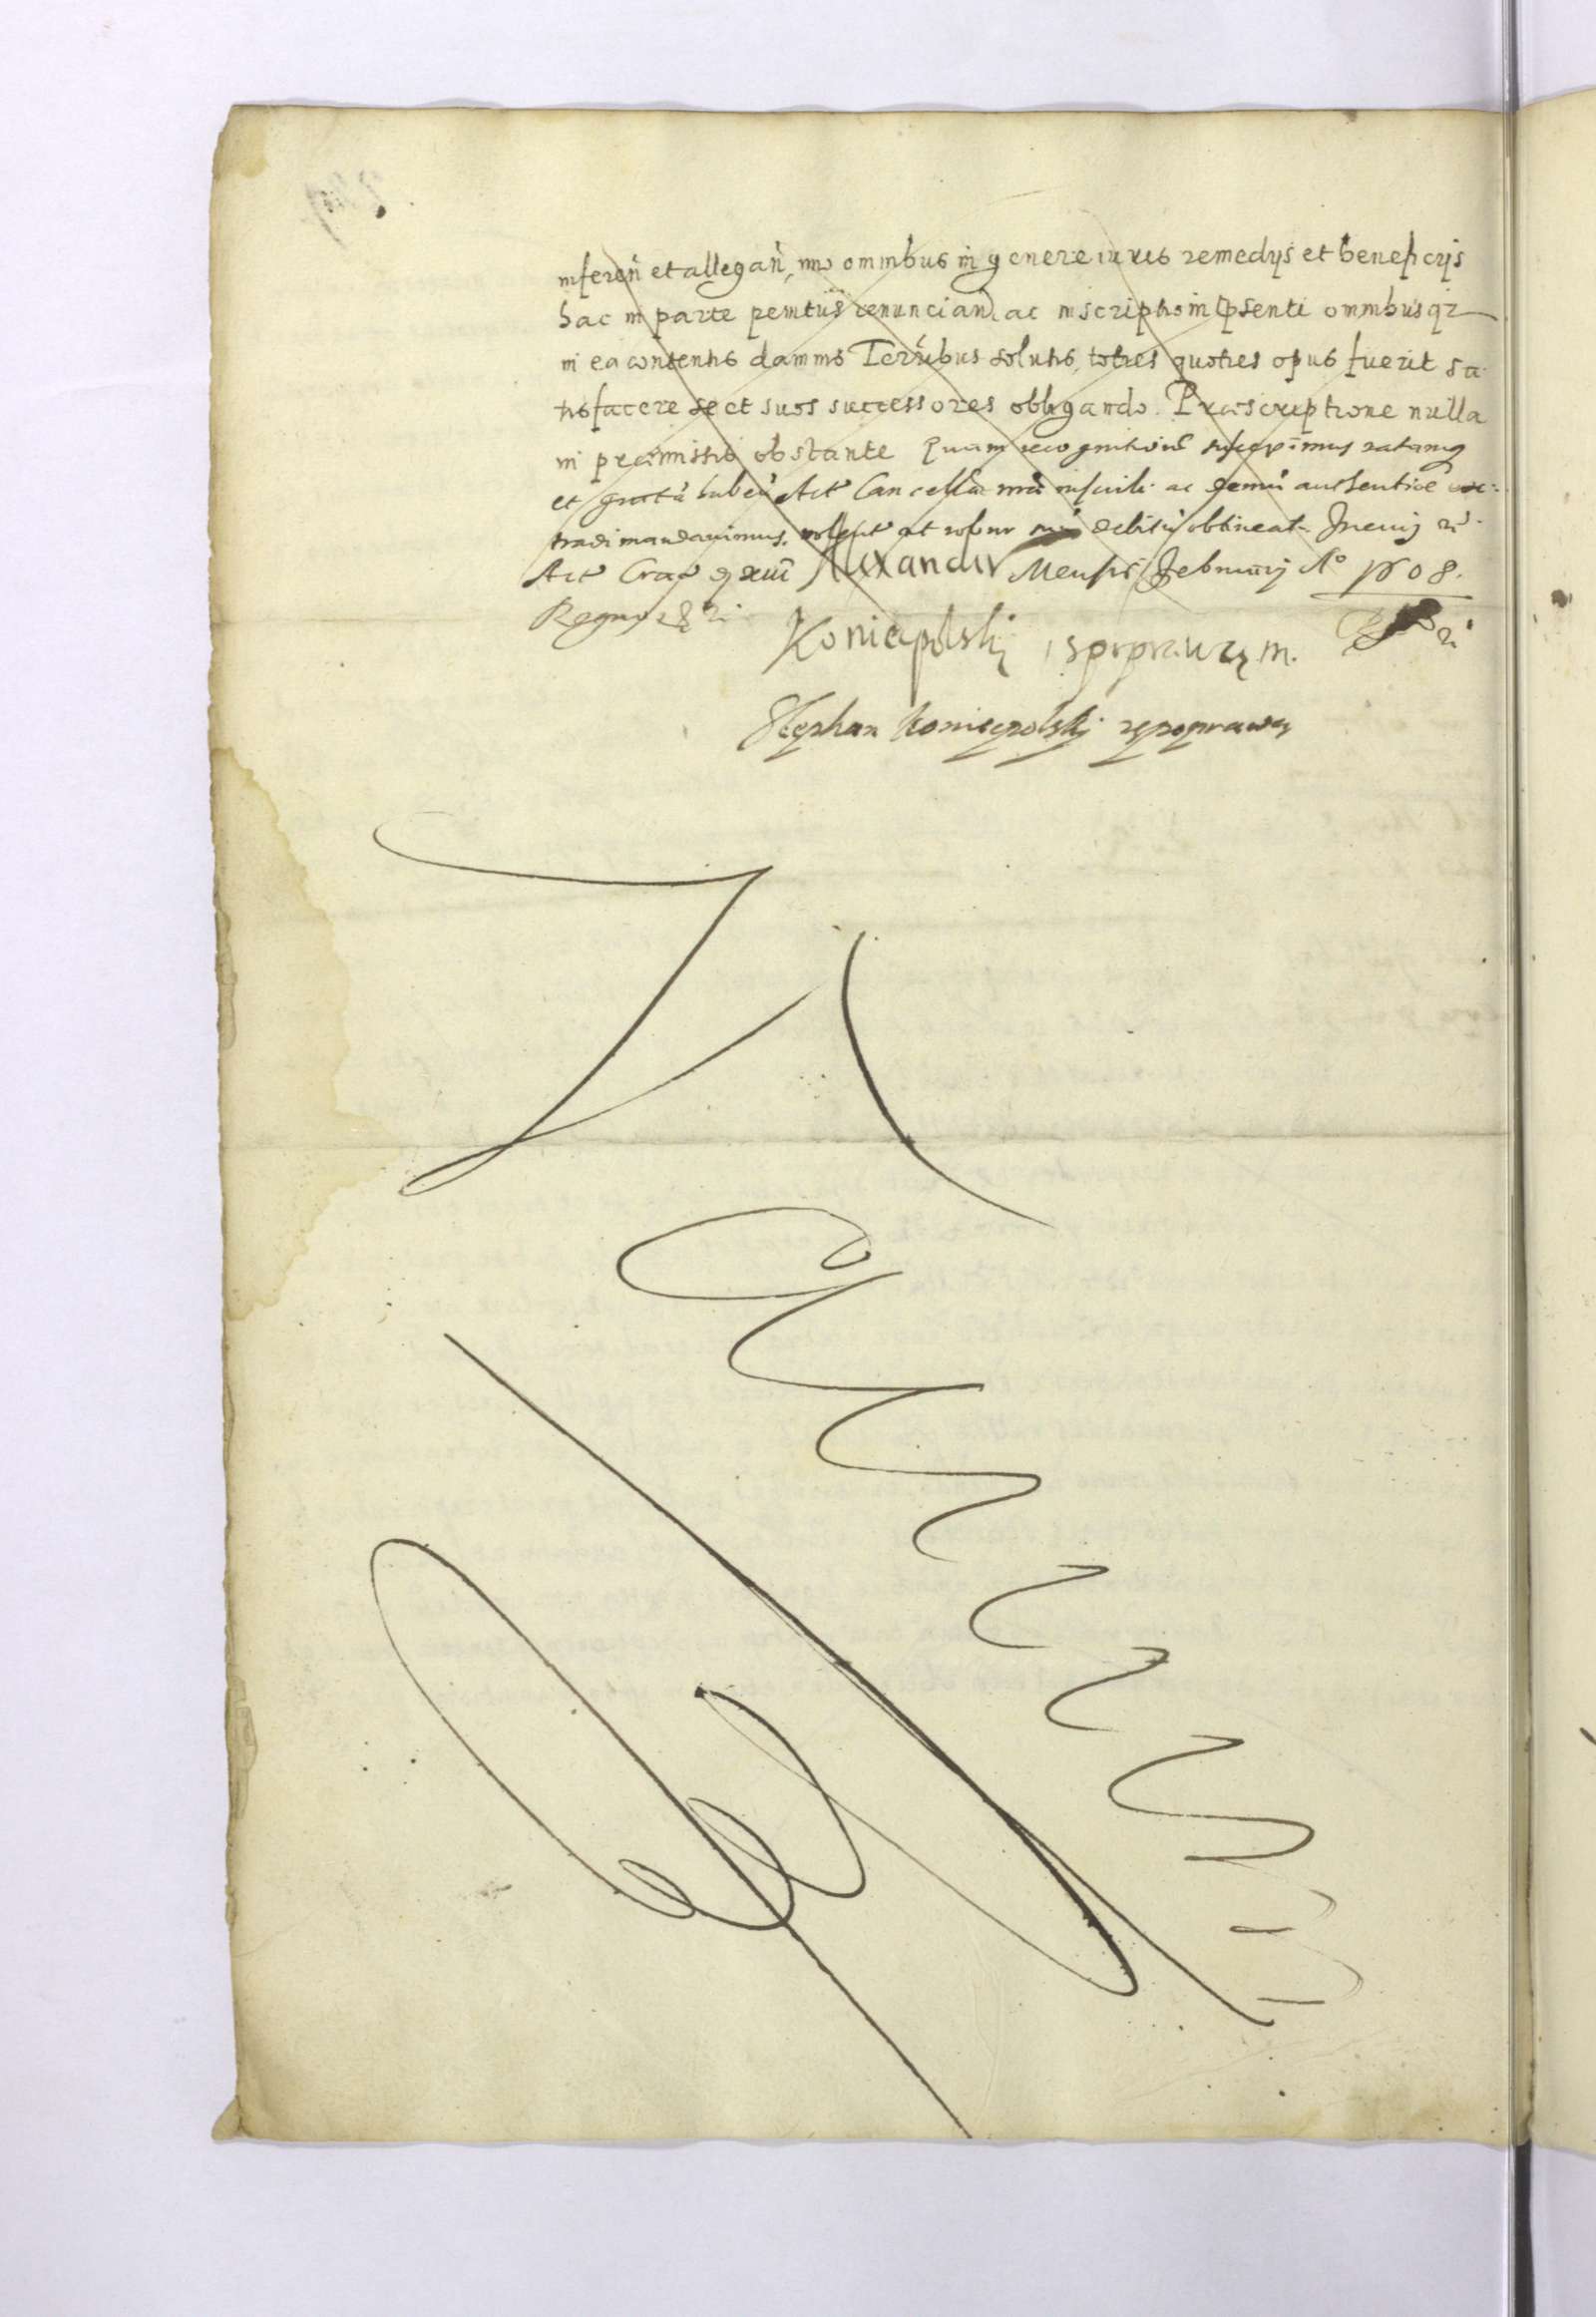 inferen et allegan, imo omnibus in genere iuris remedijs et beneficijs
hac in parte penitus renuncian ac inscriptioni psenti omnibusqz
in ea contentis damnis Terribus solutis, toties quoties opus fuerit sa
tisfacere se et suos successores obligando. Praescriptione nulla
in praemissis obstante Quam recognitione suscepimus ratamq
et gratā haben Act Cancella nrā inscribi ac demū authentice
tradi mandavimus. ut robur debitū obtineat.
Act Crac Alexander Mensis Februarij Ao 1608.
Regnor
Koniecpolskij m.
Stephan Koniecpolskij